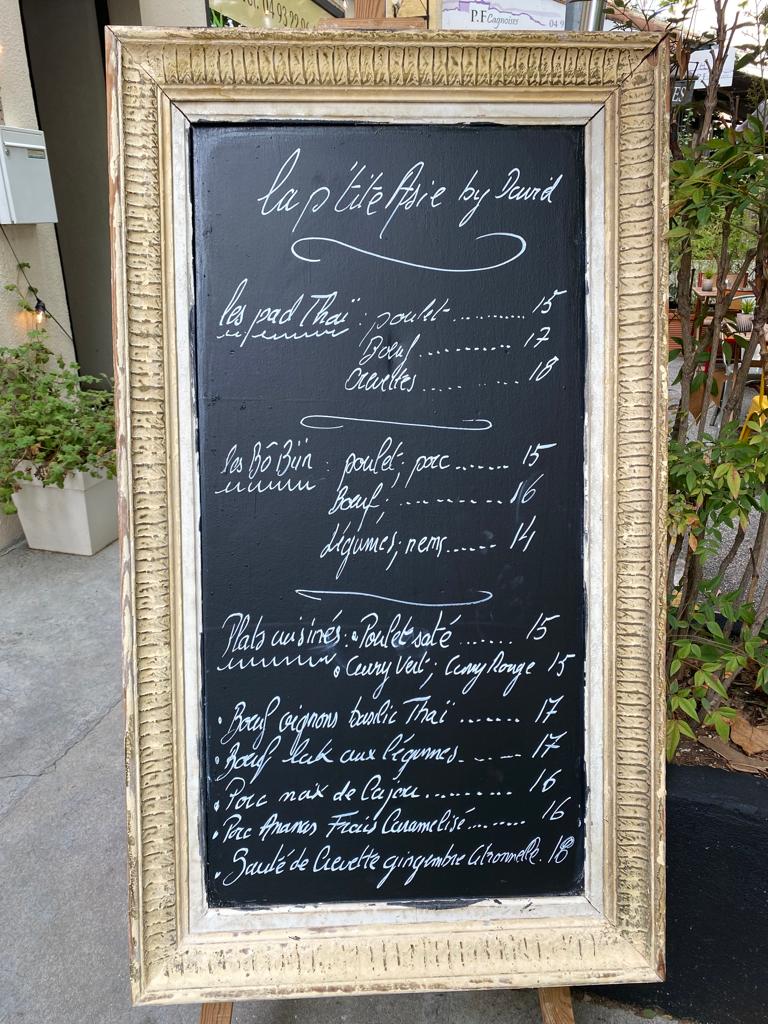 04 93 22
P.F Cagnoises
04 9
ES
la p'tite Asie by David
les pad Thaï : poulet ............ 15
Boeuf ............ 17
Crevettes .... ...... 18
les Bô Bùn : poulet, porc ....... 15
Boeuf, ............ 16
légumes, nems ...... 14
Plats cuisinés : • Poulet saté ....... 15
• Curry Vert ; Curry Rouge 15
• Boeuf oignons basilic Thaï ....... 17
• Boeuf aux légumes ....... 17
• Porc noix de Cajou ......... 16
• Porc Ananas Frais Caramélisé ....... 16
• Sauté de Crevette gingembre Citronnelle . 18